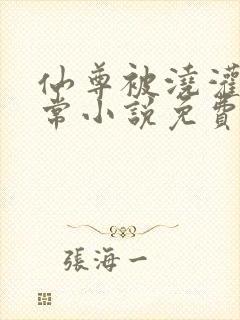 仙尊被澆灌
常小說免費
張海一